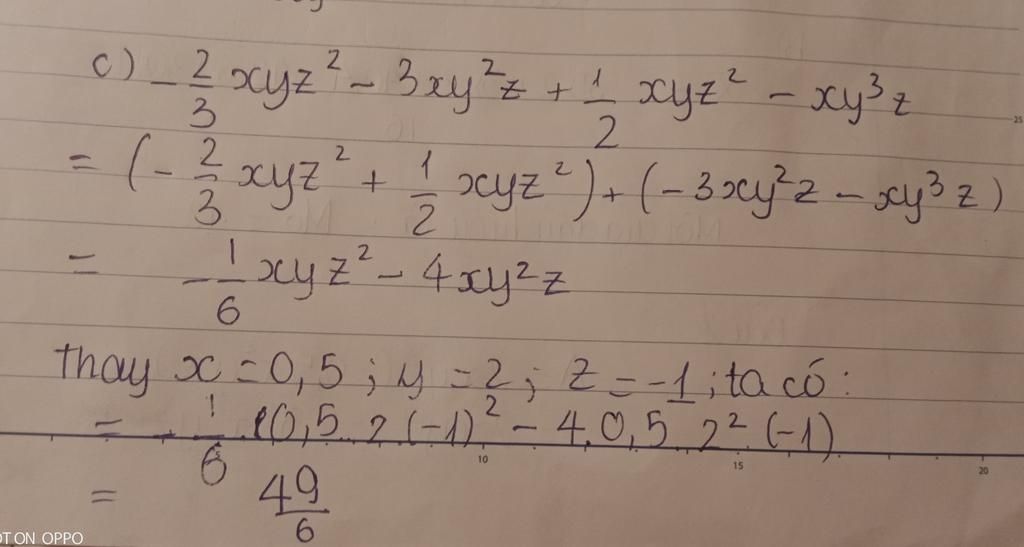 c) -2/3 xyz² - 3xy²z + 1/2 xyz² - xy³z
= (-2/3 xyz² + 1/2 xyz²) + (-3xy²z - xy³z)
= -1/6 xyz² - 4xy²z
thay x = 0,5 ; y = 2 ; z = -1 ; ta có :
= -1/6 . 0,5 . 2 (-1)² - 4 . 0,5 . 2² . (-1)
= 49/6
10 15 20
25
OT ON OPPO